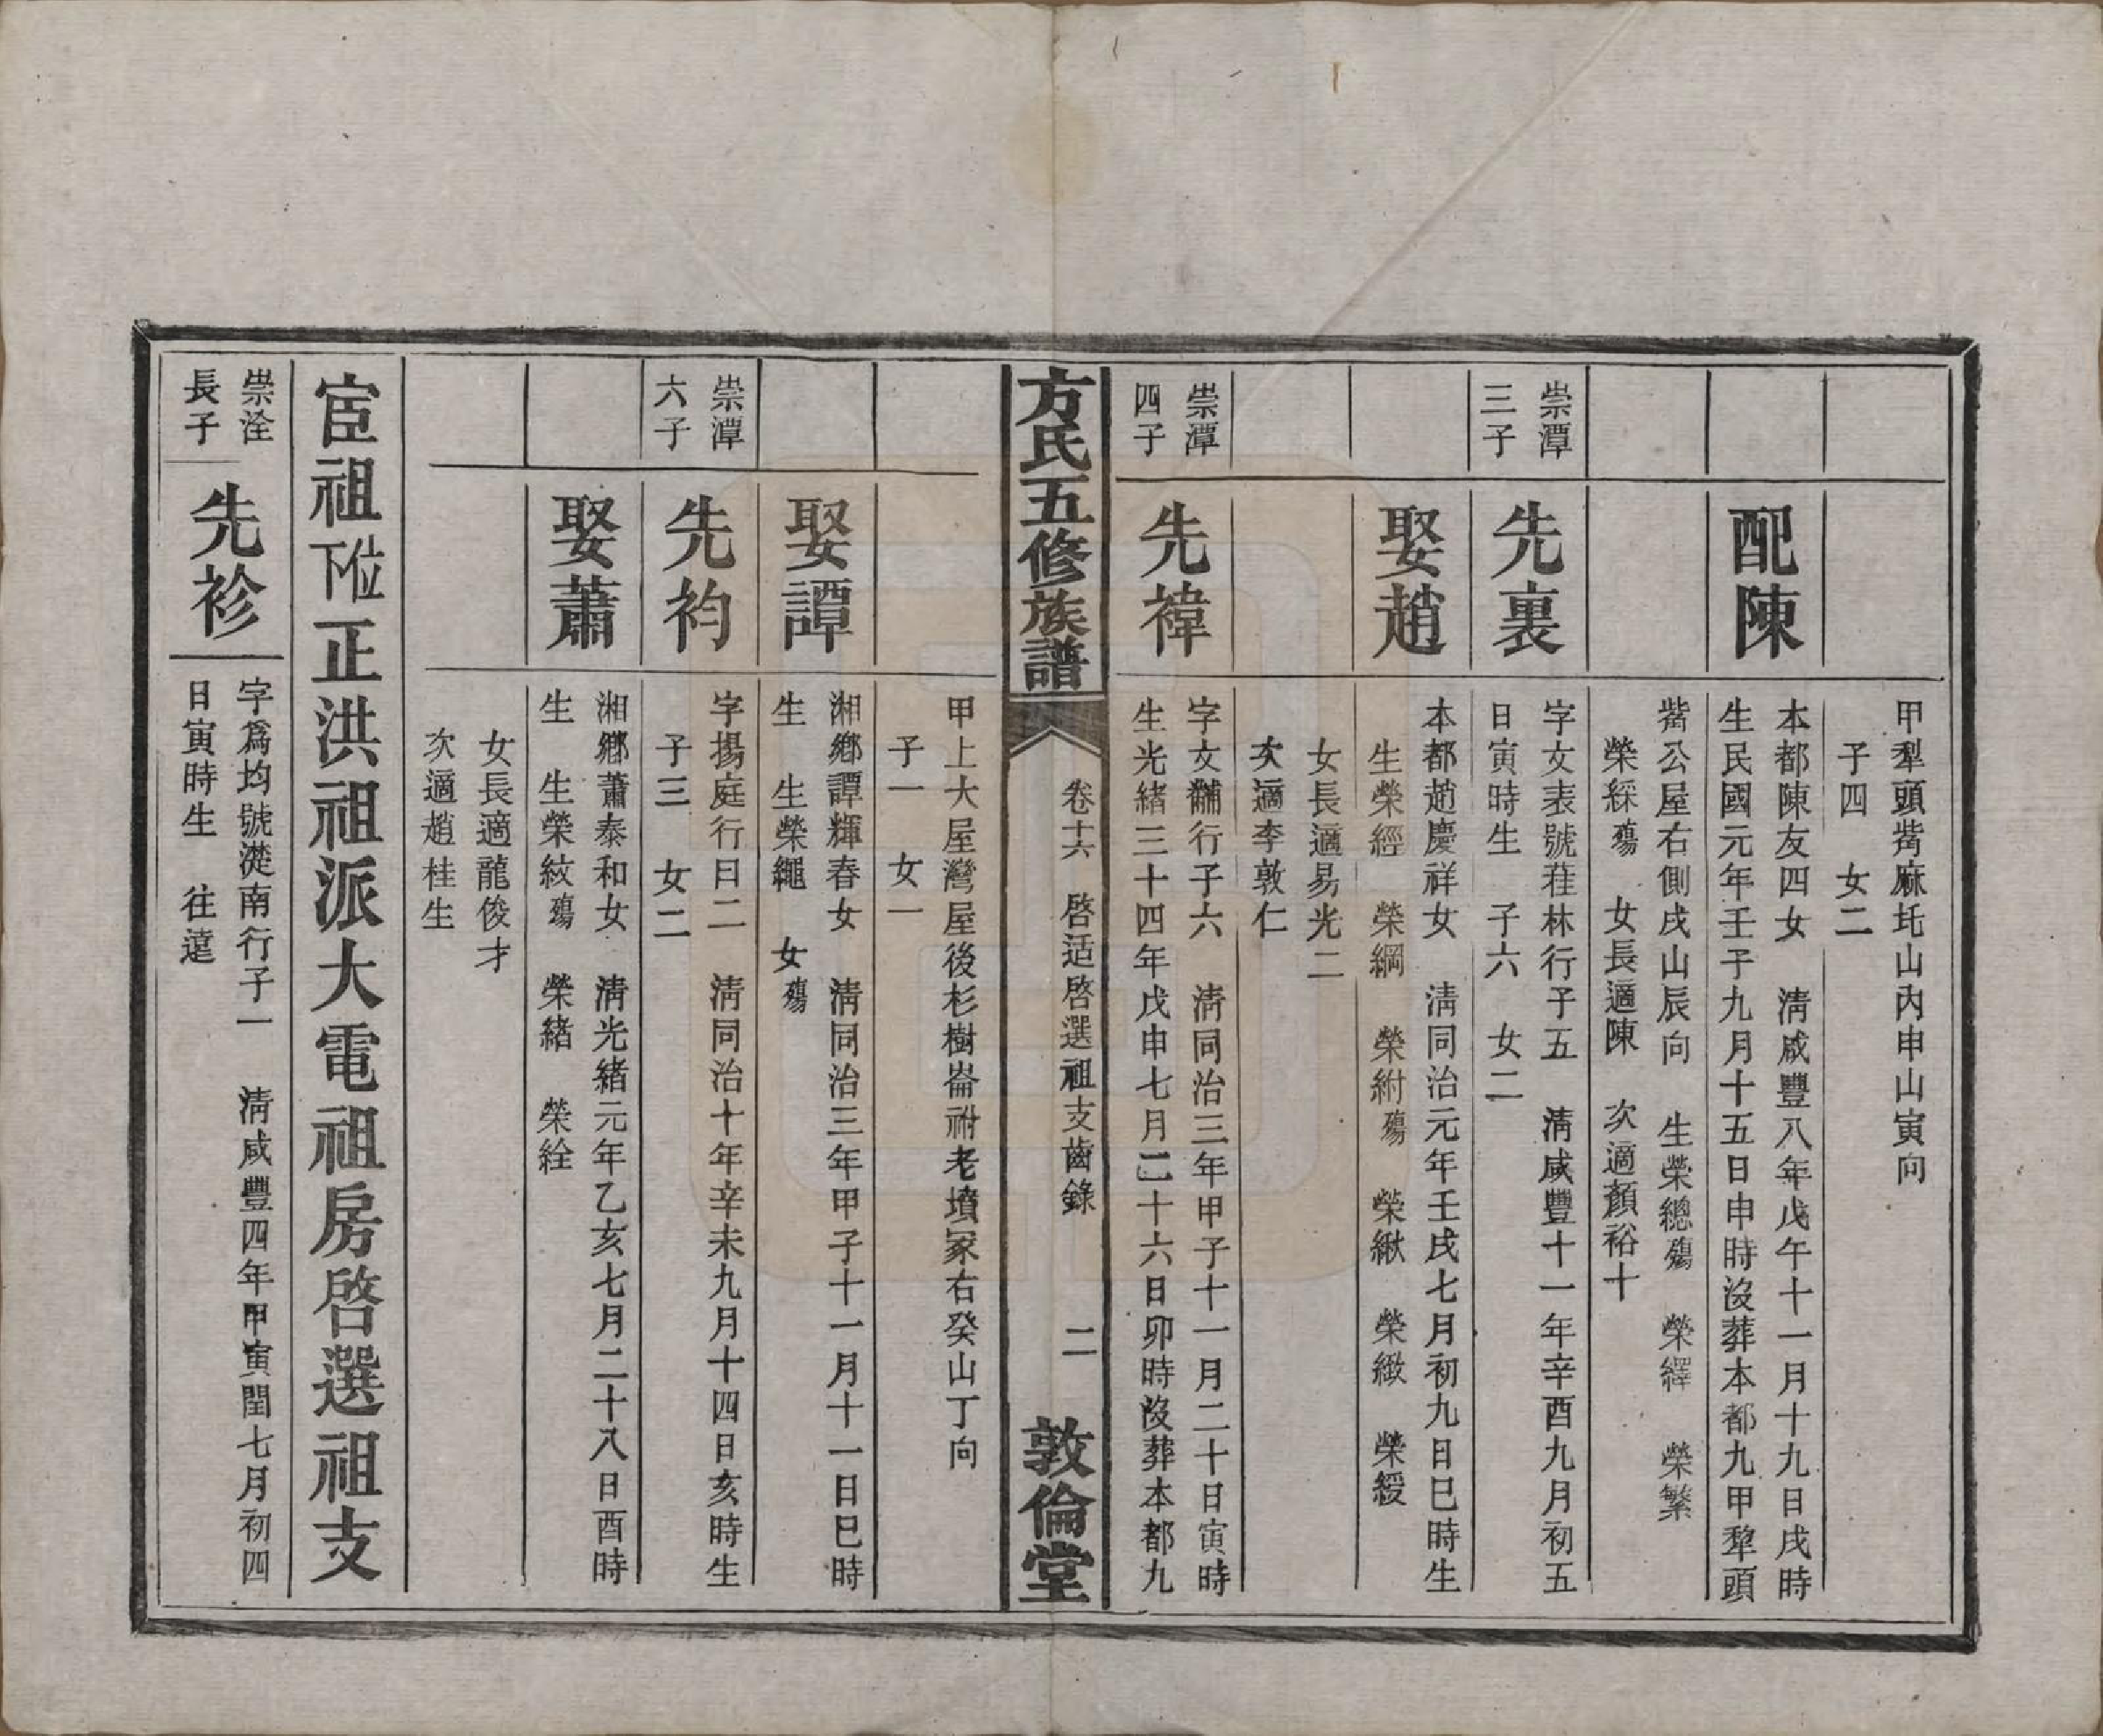 甲犁頭觜麻圫山內申山寅向
子四　女二
配陳
本都陳友四女　淸咸豐八年戊午十一月十九日戌時
生民國元年壬子九月十五日申時沒葬本都九甲犂頭
觜公屋右側戌山辰向　生榮總殤　榮繹　榮繁
榮綵殤　女長適陳　次適顏裕十
崇潭
三子
先裏
字文表號荏林行子五　淸咸豐十一年辛酉九月初五
日寅時生　子六　女二
娶趙
本都趙慶祥女　淸同治元年壬戌七月初九日巳時生
生榮經　榮綱　榮紨殤　榮緅　榮緻　榮緩
女長適易光二
次適李敦仁
崇潭
四子
先褘
字文黼行子六　淸同治三年甲子十一月二十日寅時
生光緒三十四年戊申七月二十六日卯時沒葬本都九
方氏五修族譜
卷十六　啓适啓選祖支齒錄
二
敦倫堂
甲上大屋灣屋後杉樹崙祔老墳冢右癸山丁向
子一　女一
娶譚
湘鄉譚輝春女　淸同治三年甲子十一月十一日巳時
生　生榮繩　女殤
崇潭
六子
先袀
字揚庭行曰二　淸同治十年辛未九月十四日亥時生
子三　女二
娶蕭
湘鄉蕭泰和女　淸光緒元年乙亥七月二十八日酉時
生　生榮紋殤　榮緒　榮絟
女長適龍俊才
次適趙桂生
宦祖位下正洪祖派大電祖房啓選祖支
崇洤
長子
先袗
字爲均號漎南行子一　淸咸豐四年甲寅閏七月初四
日寅時生　往遠